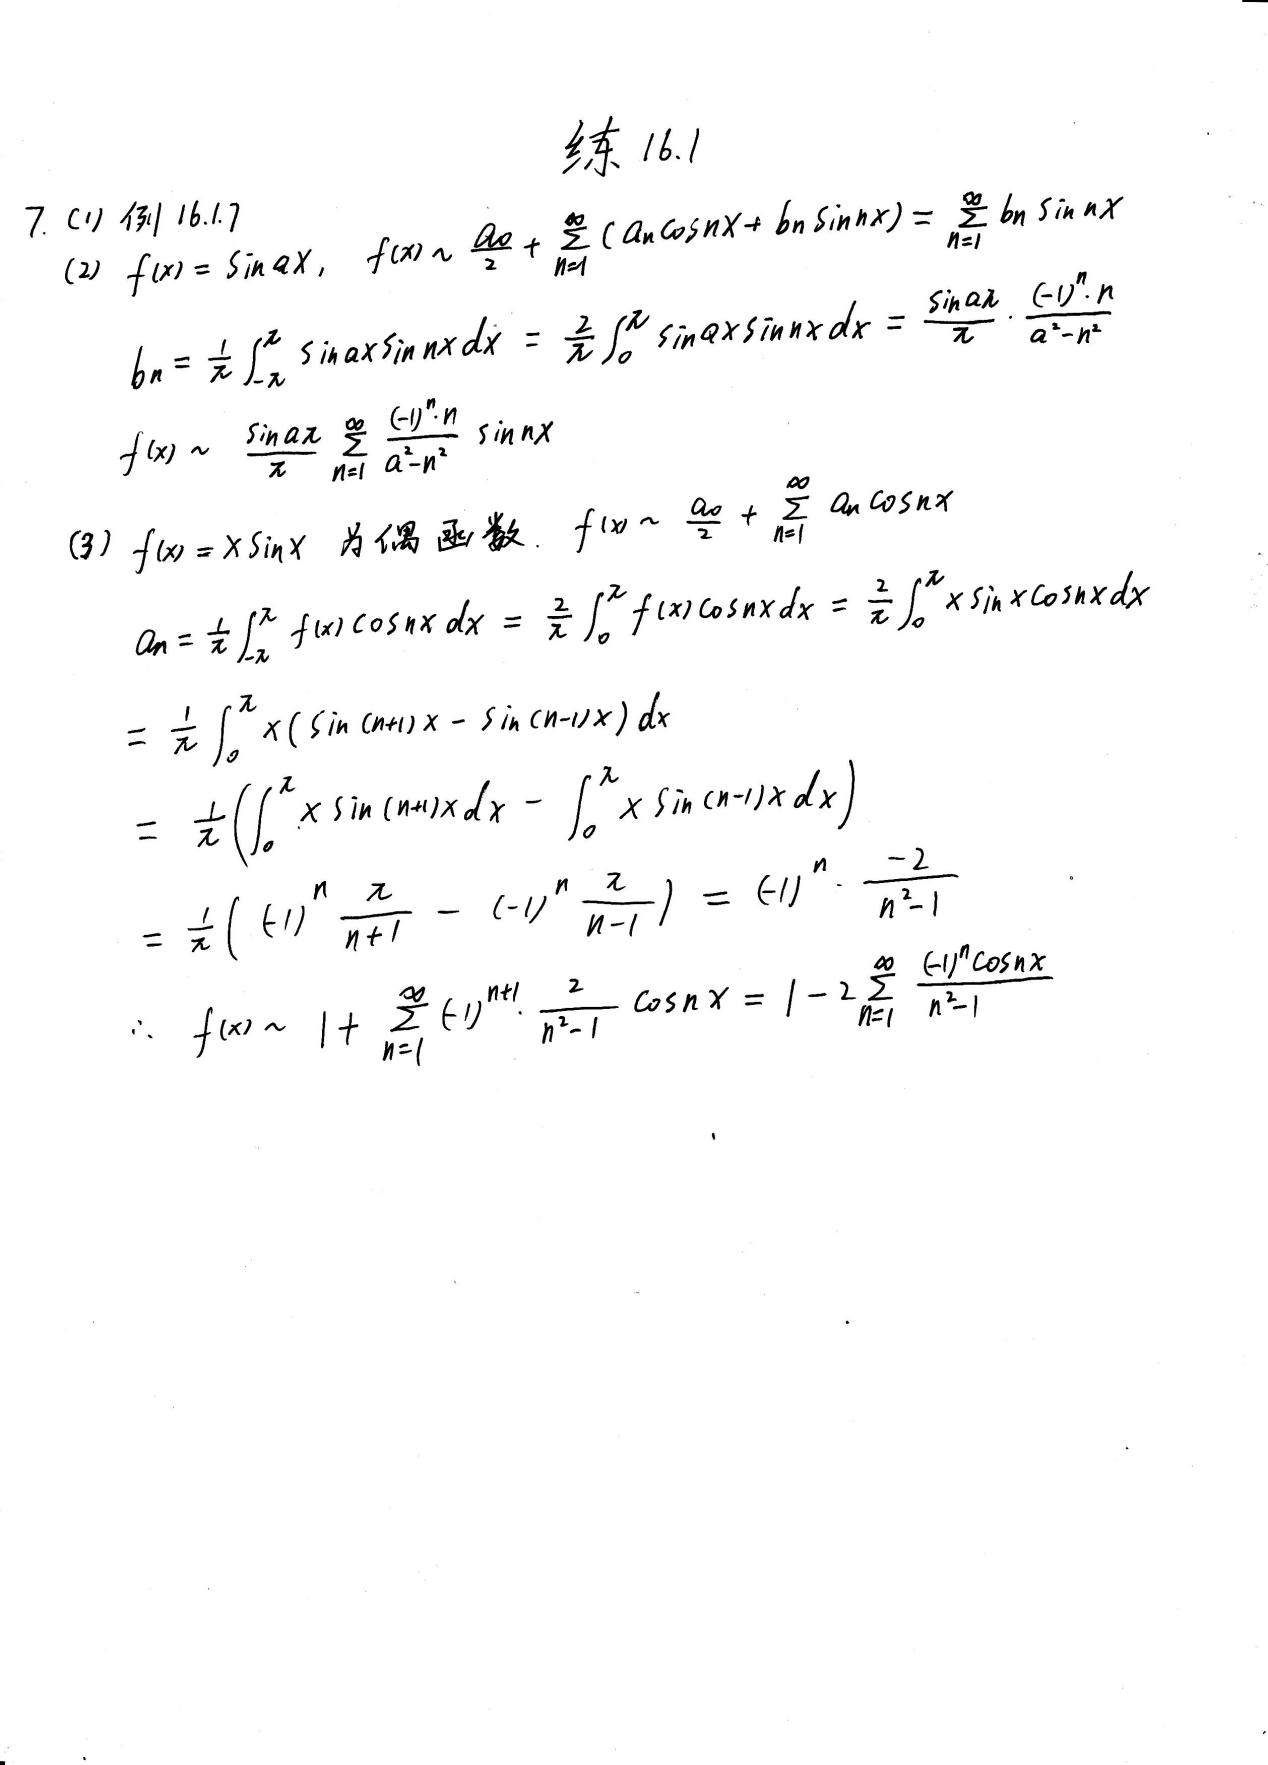 练 16.1
7. (1) 例 16.1.7
(2) f(x) = sin ax, f(x) ~ a₀/2 + ∑_{n=1}^{∞} (aₙ cos nx + bₙ sin nx) = ∑_{n=1}^{∞} bₙ sin nx
bₙ = 1/π ∫_{-π}^{π} sin ax sin nx dx = 2/π ∫_0^π sin ax sin nx dx = sin aπ/π · (-1)ⁿ·n/(a²-n²)
f(x) ~ sin aπ/π ∑_{n=1}^{∞} (-1)ⁿ·n/(a²-n²) sin nx
(3) f(x) = x sin x 为偶函数. f(x) ~ a₀/2 + ∑_{n=1}^{∞} aₙ cos nx
aₙ = 1/π ∫_{-π}^{π} f(x) cos nx dx = 2/π ∫_0^π f(x) cos nx dx = 2/π ∫_0^π x sin x cos nx dx
= 1/π ∫_0^π x( sin (n+1) x - sin (n-1) x ) dx
= 1/π ( ∫_0^π x sin (n+1)x dx - ∫_0^π x sin (n-1)x dx )
= 1/π ( (-1)ⁿ π/(n+1) - (-1)ⁿ π/(n-1) ) = (-1)ⁿ · -2/(n²-1)
∴ f(x) ~ 1 + ∑_{n=1}^{∞} (-1)ⁿ⁺¹ · 2/(n²-1) cos nx = 1 - 2 ∑_{n=1}^{∞} (-1)ⁿ cos nx/(n²-1)